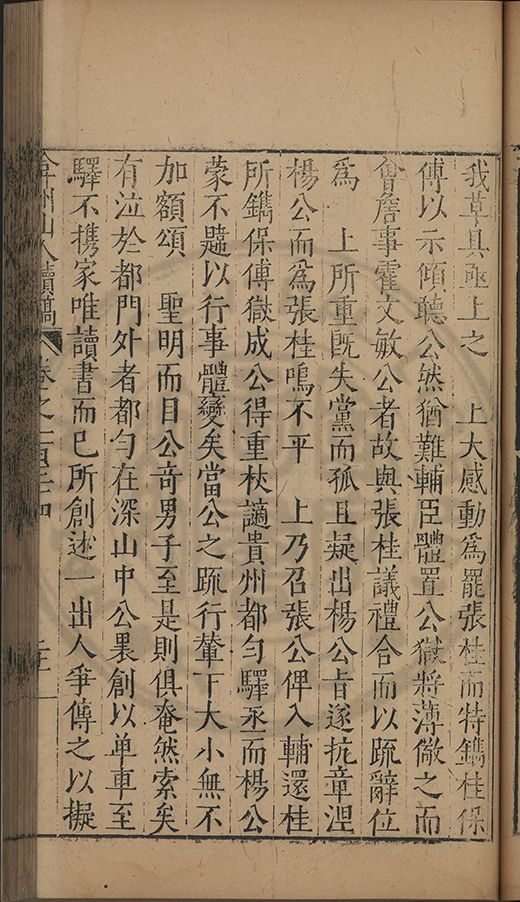 我草具亟上之　上大感動為罷張桂而特鐫桂保
傅以示傾聽公然猶難輔臣體置公獄將薄儆之而
會詹事霍文敏公者故與張桂議禮合而以疏辭位
為　上所重既失黨而孤且疑出楊公旨遂抗章涅
楊公而為張桂鳴不平　上乃召張公俾入輔還桂
所鐫保傅獄成公得重杖謫貴州都勻驛丞而楊公
蒙不韙以行事體變矣當公之疏行輦下大小無不
加額頌　聖明而目公奇男子至是則俱奄然索矣
有泣於都門外者都勻在深山中公裹創以单車至
驛不携家唯讀書而已所創述一出人爭傳之以擬
弇州山人續稿　卷之一百三十四